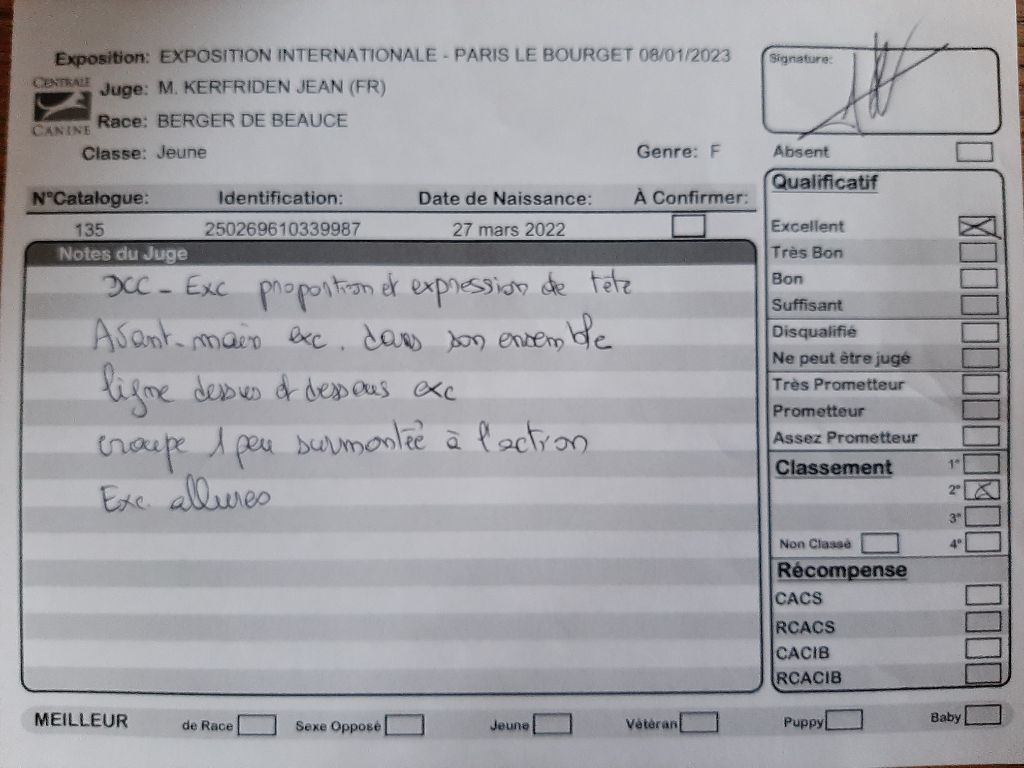 Exposition: EXPOSITION INTERNATIONALE - PARIS LE BOURGET 08/01/2023
CENTRALE CANINE
Juge: M. KERFRIDEN JEAN (FR)
Race: BERGER DE BEAUCE
Classe: Jeune Genre: F
N°Catalogue: Identification: Date de Naissance: À Confirmer:
135 250269610339987 27 mars 2022
Notes du Juge
DCC - Exc proportion et expression de tête
Avant-main exc. dans son ensemble
ligne dessus et dessous exc
croupe 1 peu surmontée à l'action
Exc. allures
Signature:
Absent
Qualificatif
Excellent
Très Bon
Bon
Suffisant
Disqualifié
Ne peut être jugé
Très Prometteur
Prometteur
Assez Prometteur
Classement 1°
2°
3°
Non Classé 4°
Récompense
CACS
RCACS
CACIB
RCACIB
MEILLEUR de Race Sexe Opposé Jeune Vétéran Puppy Baby